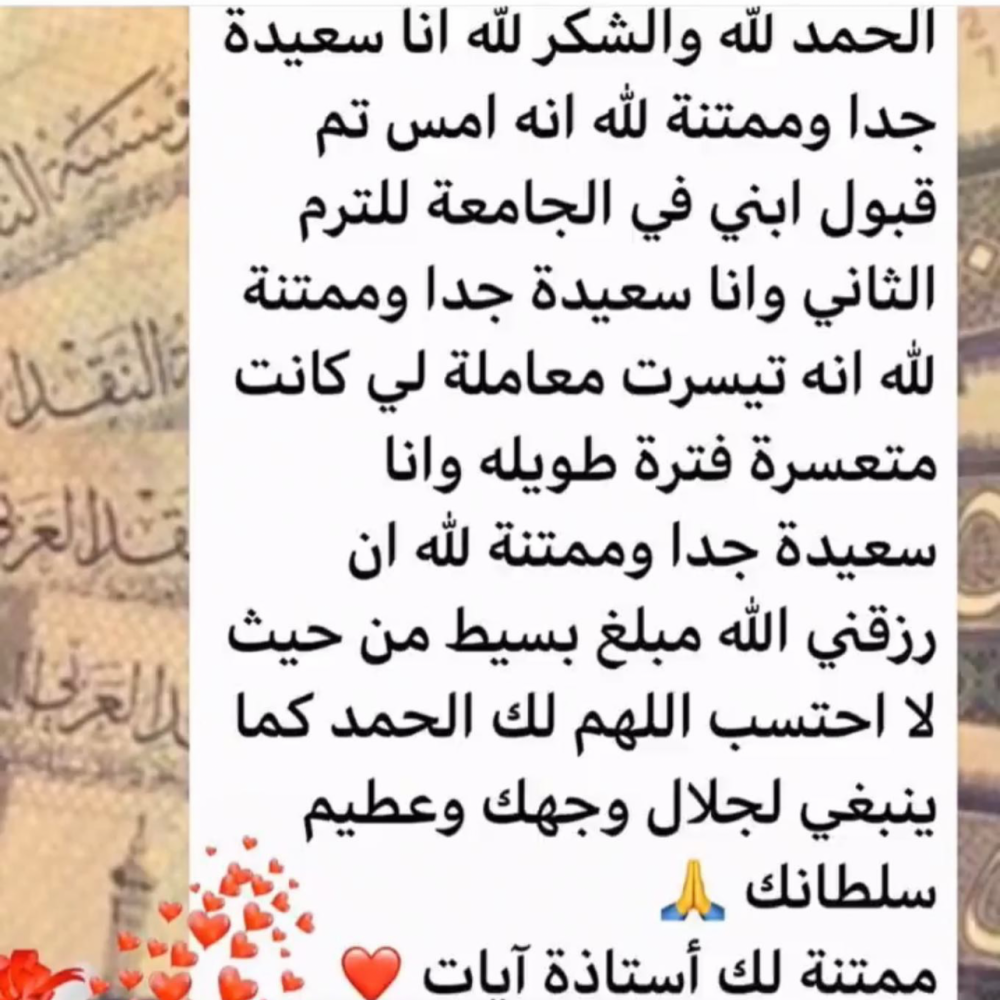 الحمد لله والشكر لله انا سعيدة
جدا وممتنة لله انه امس تم
قبول ابني في الجامعة للترم
الثاني وانا سعيدة جدا وممتنة
لله انه تيسرت معاملة لي كانت
متعسرة فترة طويله وانا
سعيدة جدا وممتنة لله ان
رزقني الله مبلغ بسيط من حيث
لا احتسب اللهم لك الحمد كما
ينبغي لجلال وجهك وعطيم
سلطانك 🙏
ممتنة لك أستاذة آيات ❤️